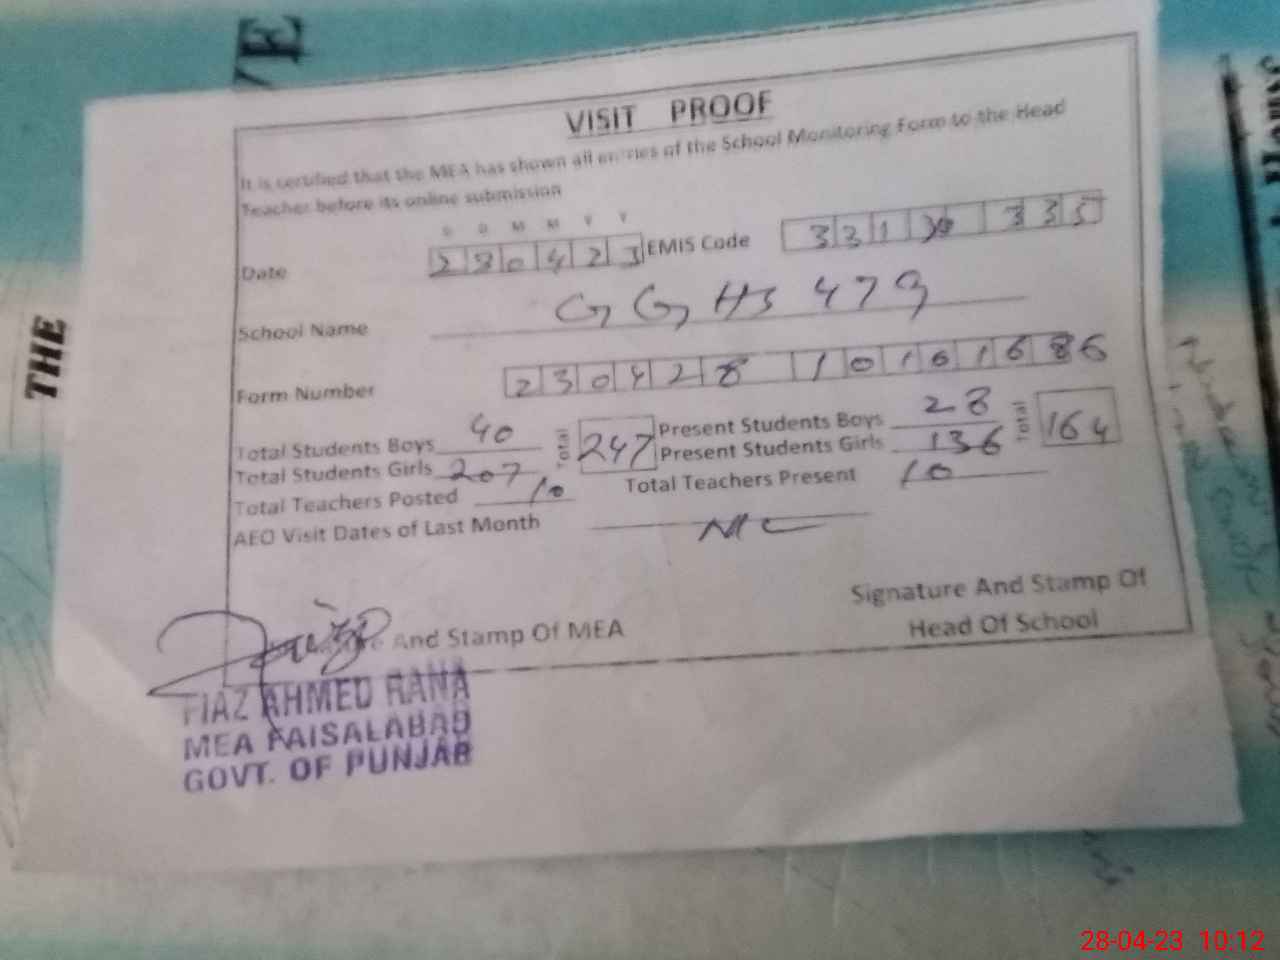 VE
THE
VISIT PROOF
It is certified that the MEA has shown all entries of the School Monitoring Form to the Head
Teacher before its online submission
D D M M Y Y
Date 280423 EMIS Code 335
School Name GGHS 479
Form Number 230428
Total Students Boys 40 Total 247 Present Students Boys 28 Total 164
Total Students Girls 207 Present Students Girls 136
Total Teachers Posted 10 Total Teachers Present 10
AEO Visit Dates of Last Month
And Stamp Of MEA
Signature And Stamp Of
Head Of School
FIAZ AHMED RANA
MEA FAISALABAD
GOVT. OF PUNJAB
28-04-23 10:12